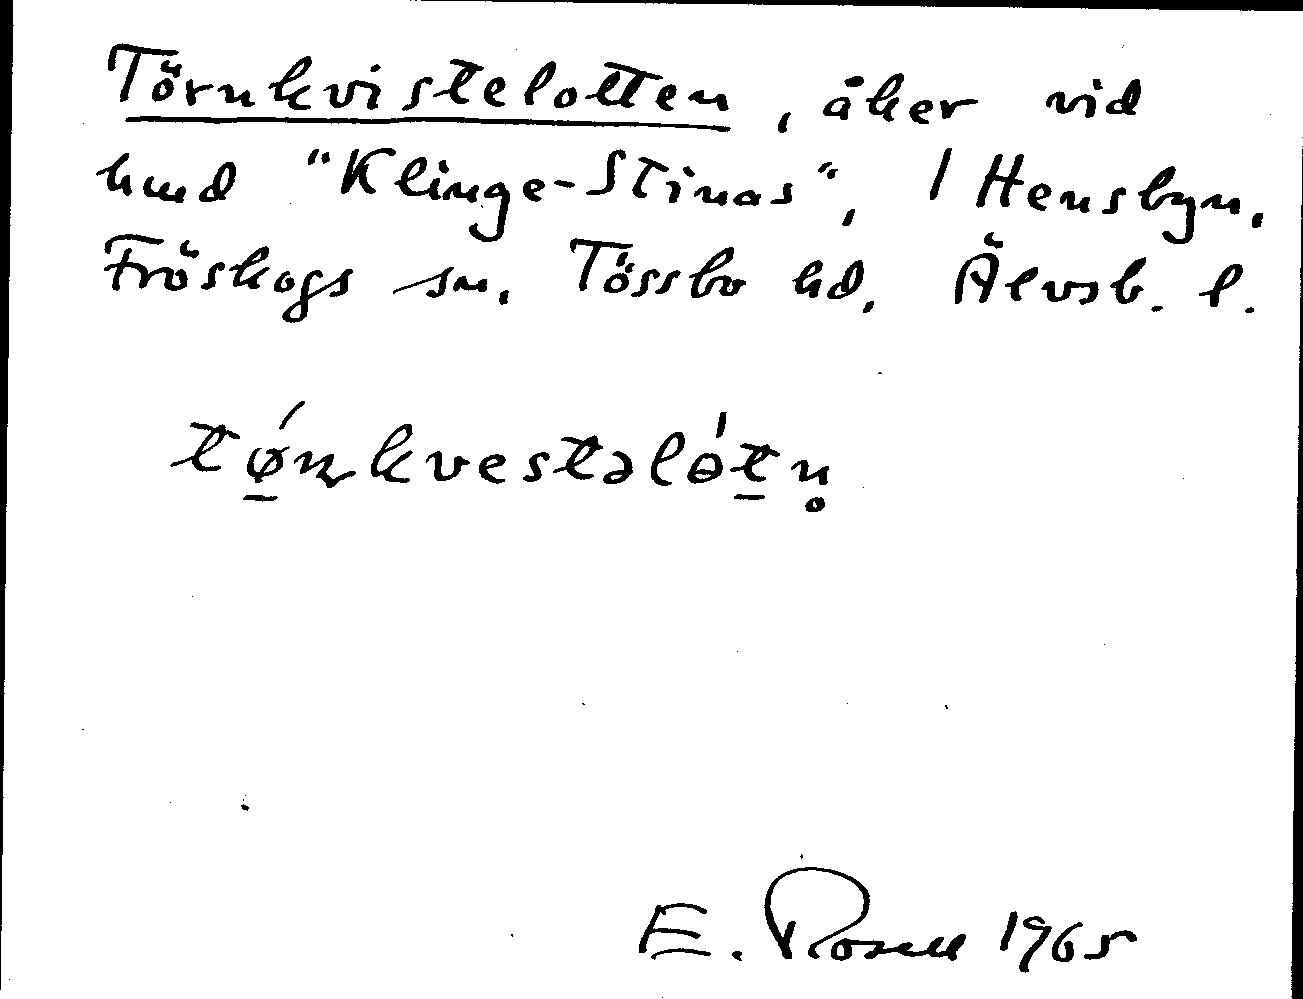 Törnkvistelotten, åker vid
hmd "Klinge-Stinas", 1 Hensbyn.
Fröskogs sn. Tössbo hd. Älvsb. l.
tǿ̲ɳkvestəlɵ́t̲n̥
E. Rosell 1965